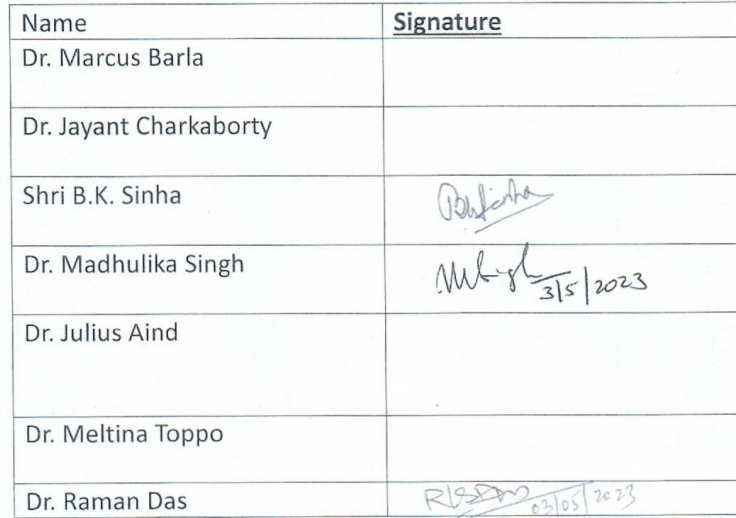 Name Signature
Dr. Marcus Barla
Dr. Jayant Charkaborty
Shri B.K. Sinha BKSinha
Dr. Madhulika Singh MSingh 3/5/2023
Dr. Julius Aind
Dr. Meltina Toppo
Dr. Raman Das 03/05/2023